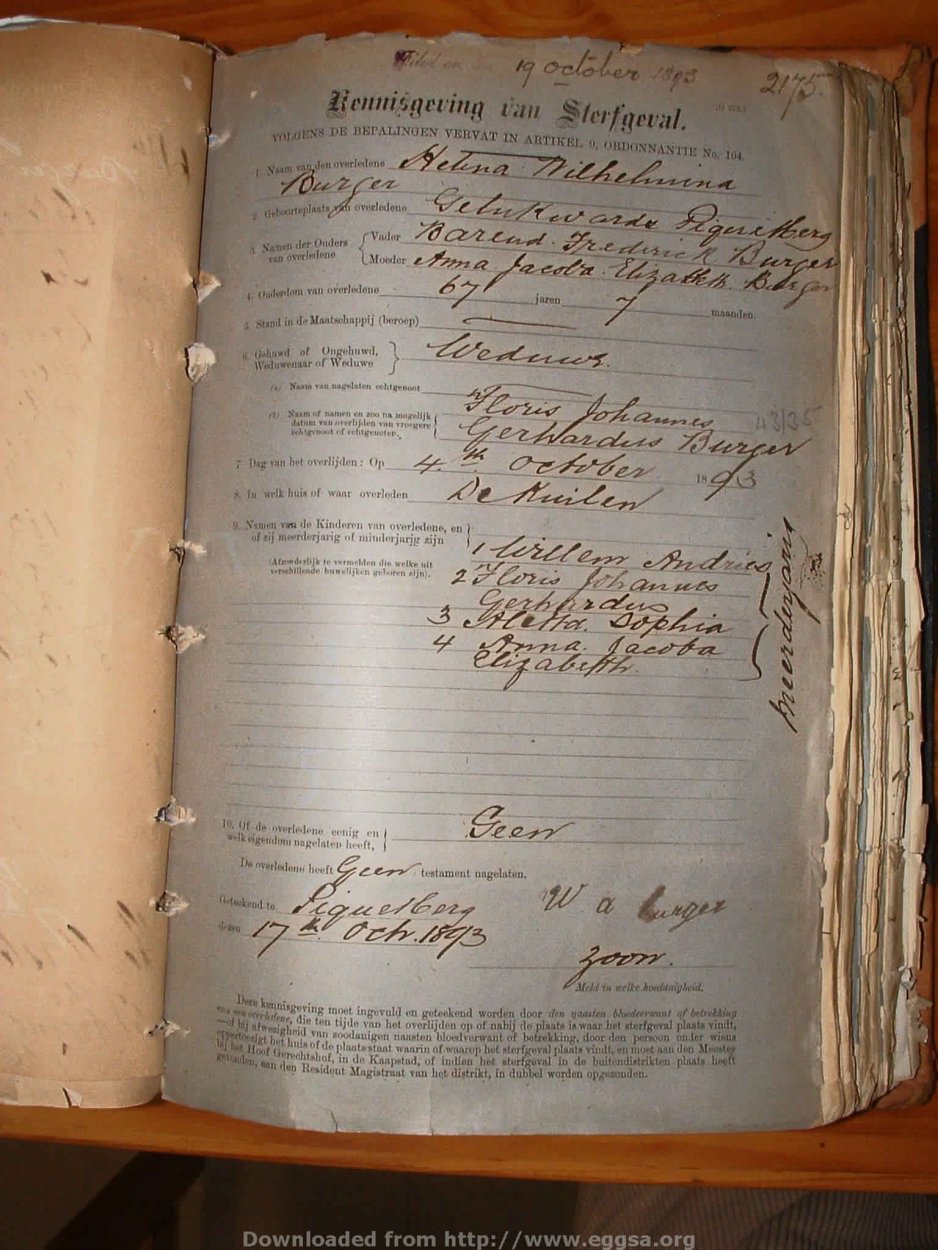 Filed on the 19 october 1893
2175.
Kennisgeving van Sterfgeval.
VOLGENS DE BEPALINGEN VERVAT IN ARTIKEL 9, ORDONNANTIE No. 104.
1. Naam van den overledene Helena Wilhelmina
Burger
2. Geboorteplaats van overledene Gelukwaards Piquetberg
3. Namen der Ouders van overledene { Vader Barend Frederick Burger
Moeder Anna Jacoba Elizabeth Burger
4. Ouderdom van overledene 67 jaren 7 maanden.
5. Stand in de Maatschappij (beroep)
6. Gehuwd of Ongehuwd,
Weduwenaar of Weduwe } Weduwe.
(a) Naam van nagelaten echtgenoot
(b) Naam of namen en zoo na mogelijk
datum van overlijden van vroegere
echtgenoot of echtgenoten.
Floris Johannes
Gerhardus Burger
43/35
7 Dag van het overlijden: Op 4th october 1893
8. In welk huis of waar overleden De Kuilen
9. Namen van de Kinderen van overledene, en
of zij meerderjarig of minderjarig zijn
(Afzonderlijk te vermelden die welke uit
verschillende huwelijken geboren zijn).
1 Willem Andries
2 Floris Johannes
Gerhardus
3 Aletta Sophia
4 Anna Jacoba
Elizabeth
meerderjarig
10. Of de overledene eenig en
welk eigendom nagelaten heeft, } Geen
De overledene heeft Geen testament nagelaten.
Geteekend te Piquetberg
W a Burger
dezen 17th Octr. 1893
zoon.
Meld in welke hoedanigheid.
Deze kennisgeving moet ingevuld en geteekend worden door den naasten bloedverwant of betrekking
van den overledene, die ten tijde van het overlijden op of nabij de plaats is waar het sterfgeval plaats vindt,
—of bij afwezigheid van zoodanigen naasten bloedverwant of betrekking, door den persoon onder wiens
oppertoezigt het huis of de plaats staat waarin of waarop het sterfgeval plaats vindt, en moet aan den Meester
bij het Hoof Gerechtshof, in de Kaapstad, of indien het sterfgeval in de buitendistrikten plaats heeft
gevonden, aan den Resident Magistraat van het distrikt, in dubbel worden opgezonden.
Downloaded from http://www.eggsa.org